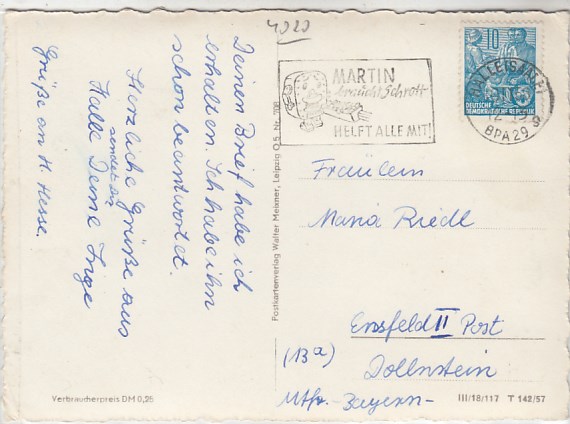 4020
Deinen Brief habe ich
erhalten. Ich habe ihn
schon beantwortet.
Herzliche Grüße aus
Halle sendet Dir
Deine Inge
Grüße an H. Hesse.
MARTIN
braucht Schrott
HELFT ALLE MIT!
10
DEUTSCHE
DEMOKRATISCHE REPUBLIK
BPA 29
Fräulein
Maria Riedl
Ensfeld II Post
(13a) Dollnstein
Bayern-
Postkartenverlag Walter Meixner, Leipzig O 5, Nr. 708
Verbraucherpreis DM 0,25
III/18/117 T 142/57